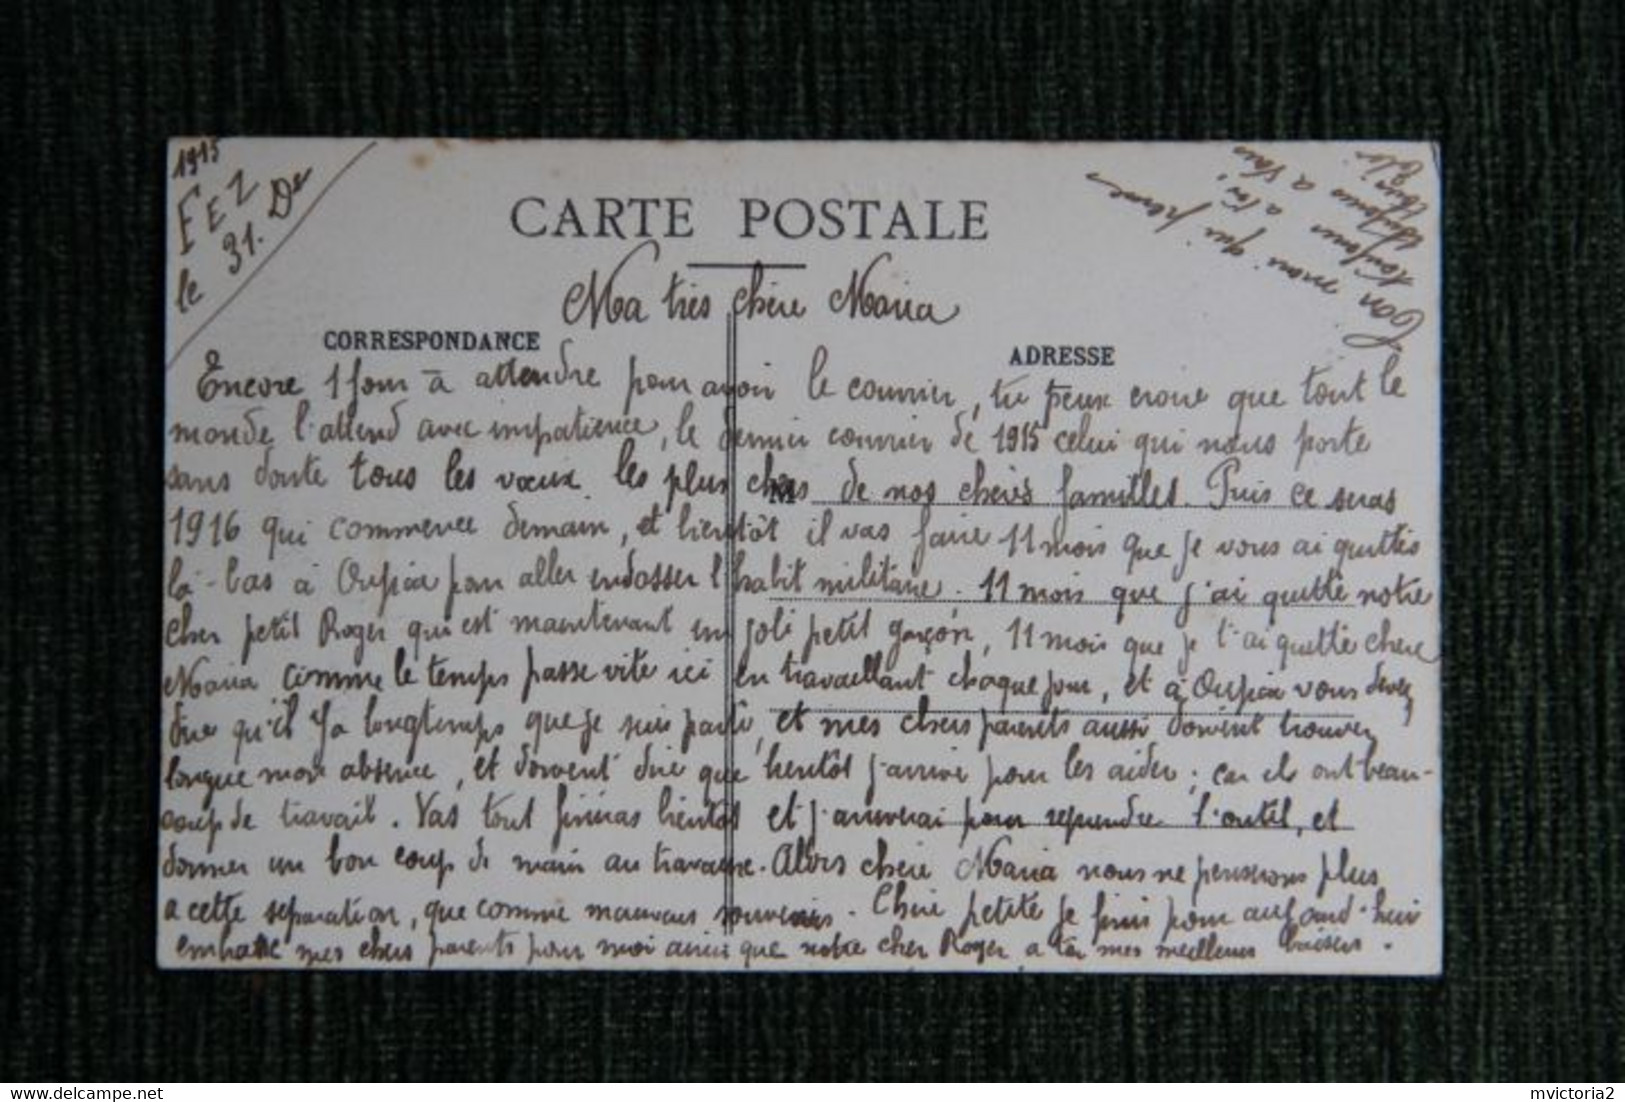 1915
FEZ
le 31. De
CARTE POSTALE
Ma très chère Maria
CORRESPONDANCE
ADRESSE
Encore 1 jour à attendre pour avoir le courrier, tu peux croire que tout le
monde l'attend avec impatience, le dernier courrier de 1915 celui qui nous porte
sans doute tous les vœux les plus chers de nos chères familles. Puis ce seras
M
1916 qui commence demain, et bientôt il vas faire 11 mois que je vous ai quittés
là-bas à Oupia pour aller endosser l'habit militaire. 11 mois que j'ai quitté notre
cher petit Roger qui est maintenant un joli petit garçon, 11 mois que je t'ai quittée chère
Maria comme le temps passe vite ici en travaillant chaque jour, et à Oupia vous devez
dire qu'il y a longtemps que je suis parti, et mes chers parents aussi doivent trouver
longue mon absence, et doivent dire que bientôt j'arrive pour les aider, car ils ont beau-
coup de travail. Vas tout finiras bientôt et j'arriverai pour reprendre l'outil, et
donner un bon coup de main au travail. Alors chère Maria nous ne penserons plus
a cette séparation, que comme mauvais souvenirs. Chère petite je finis pour aujourd'hui
embrasse mes chers parents pour moi ainsi que notre cher Roger a toi mes meilleurs baisers.
Ton mari qui pense
toujours a toi